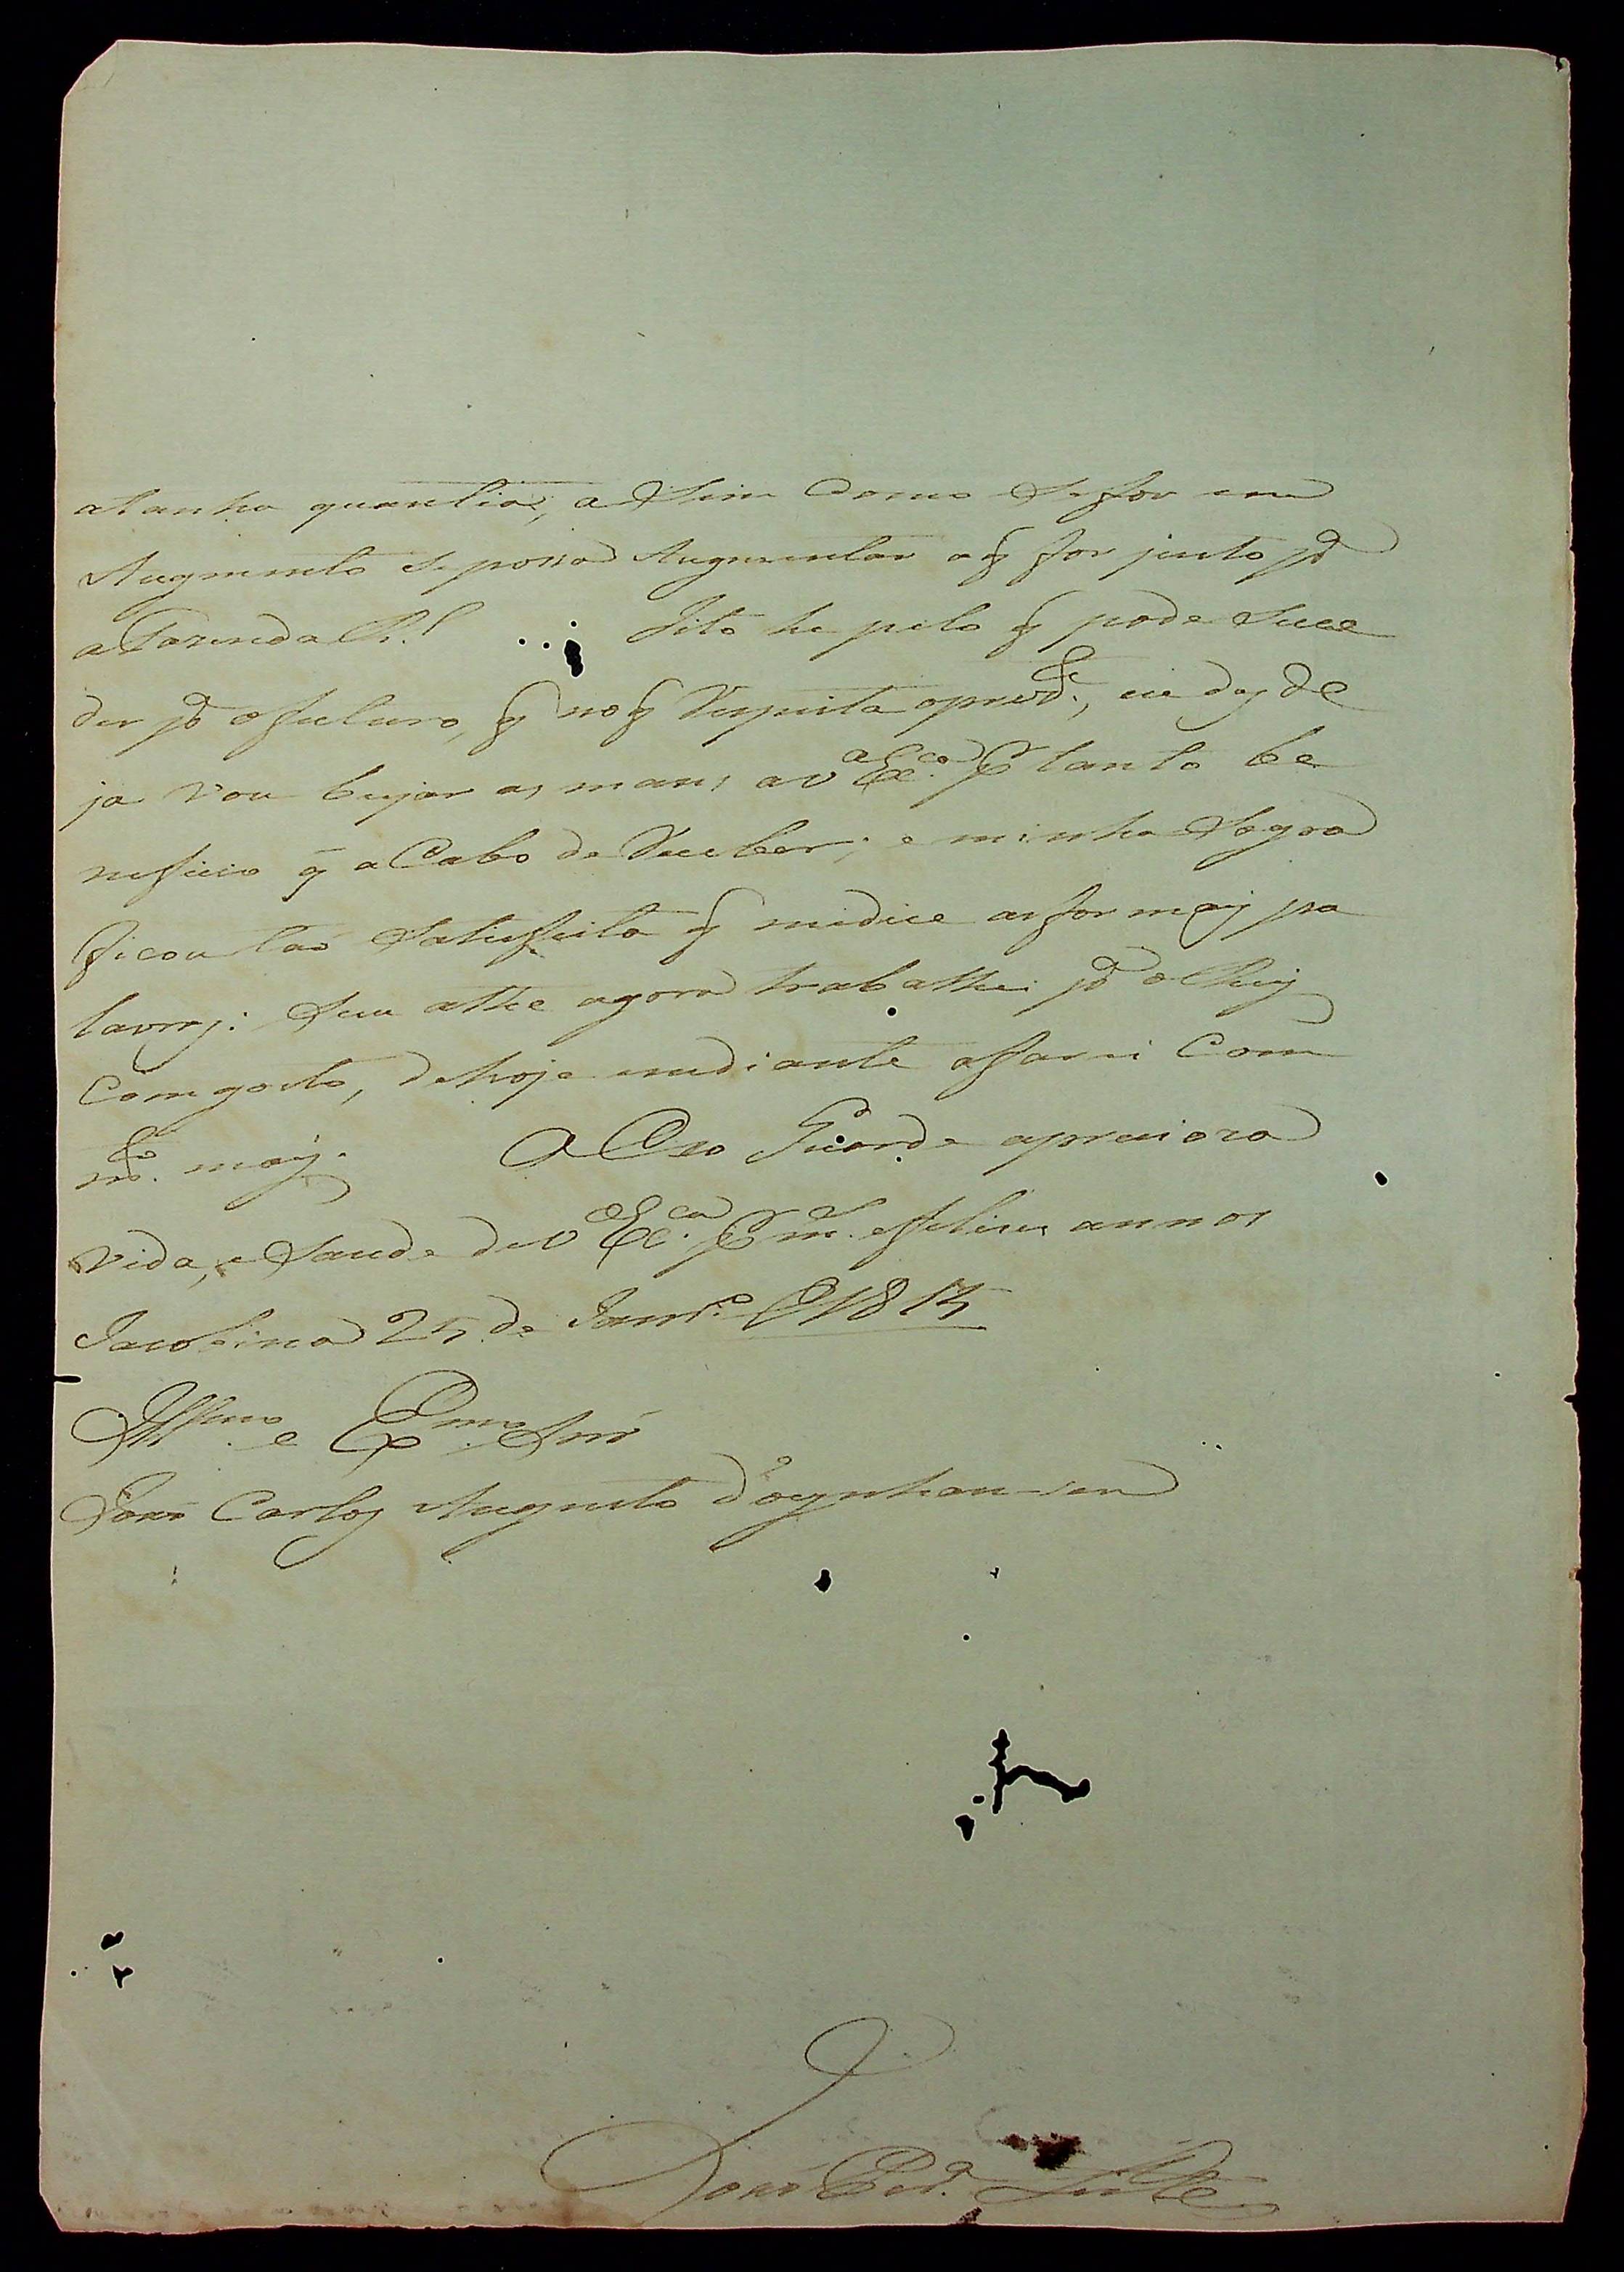 atanha quantia, a Sim Como Se for em
Augmento Se possa Augmentar o q̃ for justo p.ª
a Fazenda R.l Isto he pelo q̃ pode Suce
der p.ª o futuro, q̃ no q̃ Respeita o prez.te,
ja vou beijar as maons a V Ex.ca P tanto be
neficio q̃ a Cabo de Receber; e minha Sogra
ficou tao Satisfeita q̃ medice as formaiz pa
lavrz: Seu athe agora trabalhei p.ª o Rey
Com gosto, de hoje em diante o farei Com
m.to maiz. A Deo Guarde a precioza
vida, e Saude de V Ex.ca P m.s e felices annos
Jacobina 25 de Janr.o 1815
Ill.mo e Ex.mo Snr
João Carlos Augusto d'oeynhausen
João Per.ª Leite